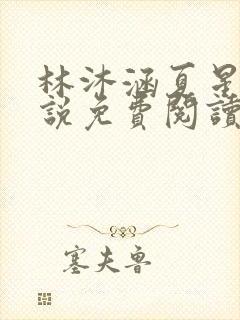 林沐涵夏星
說免費閱讀
塞夫魯